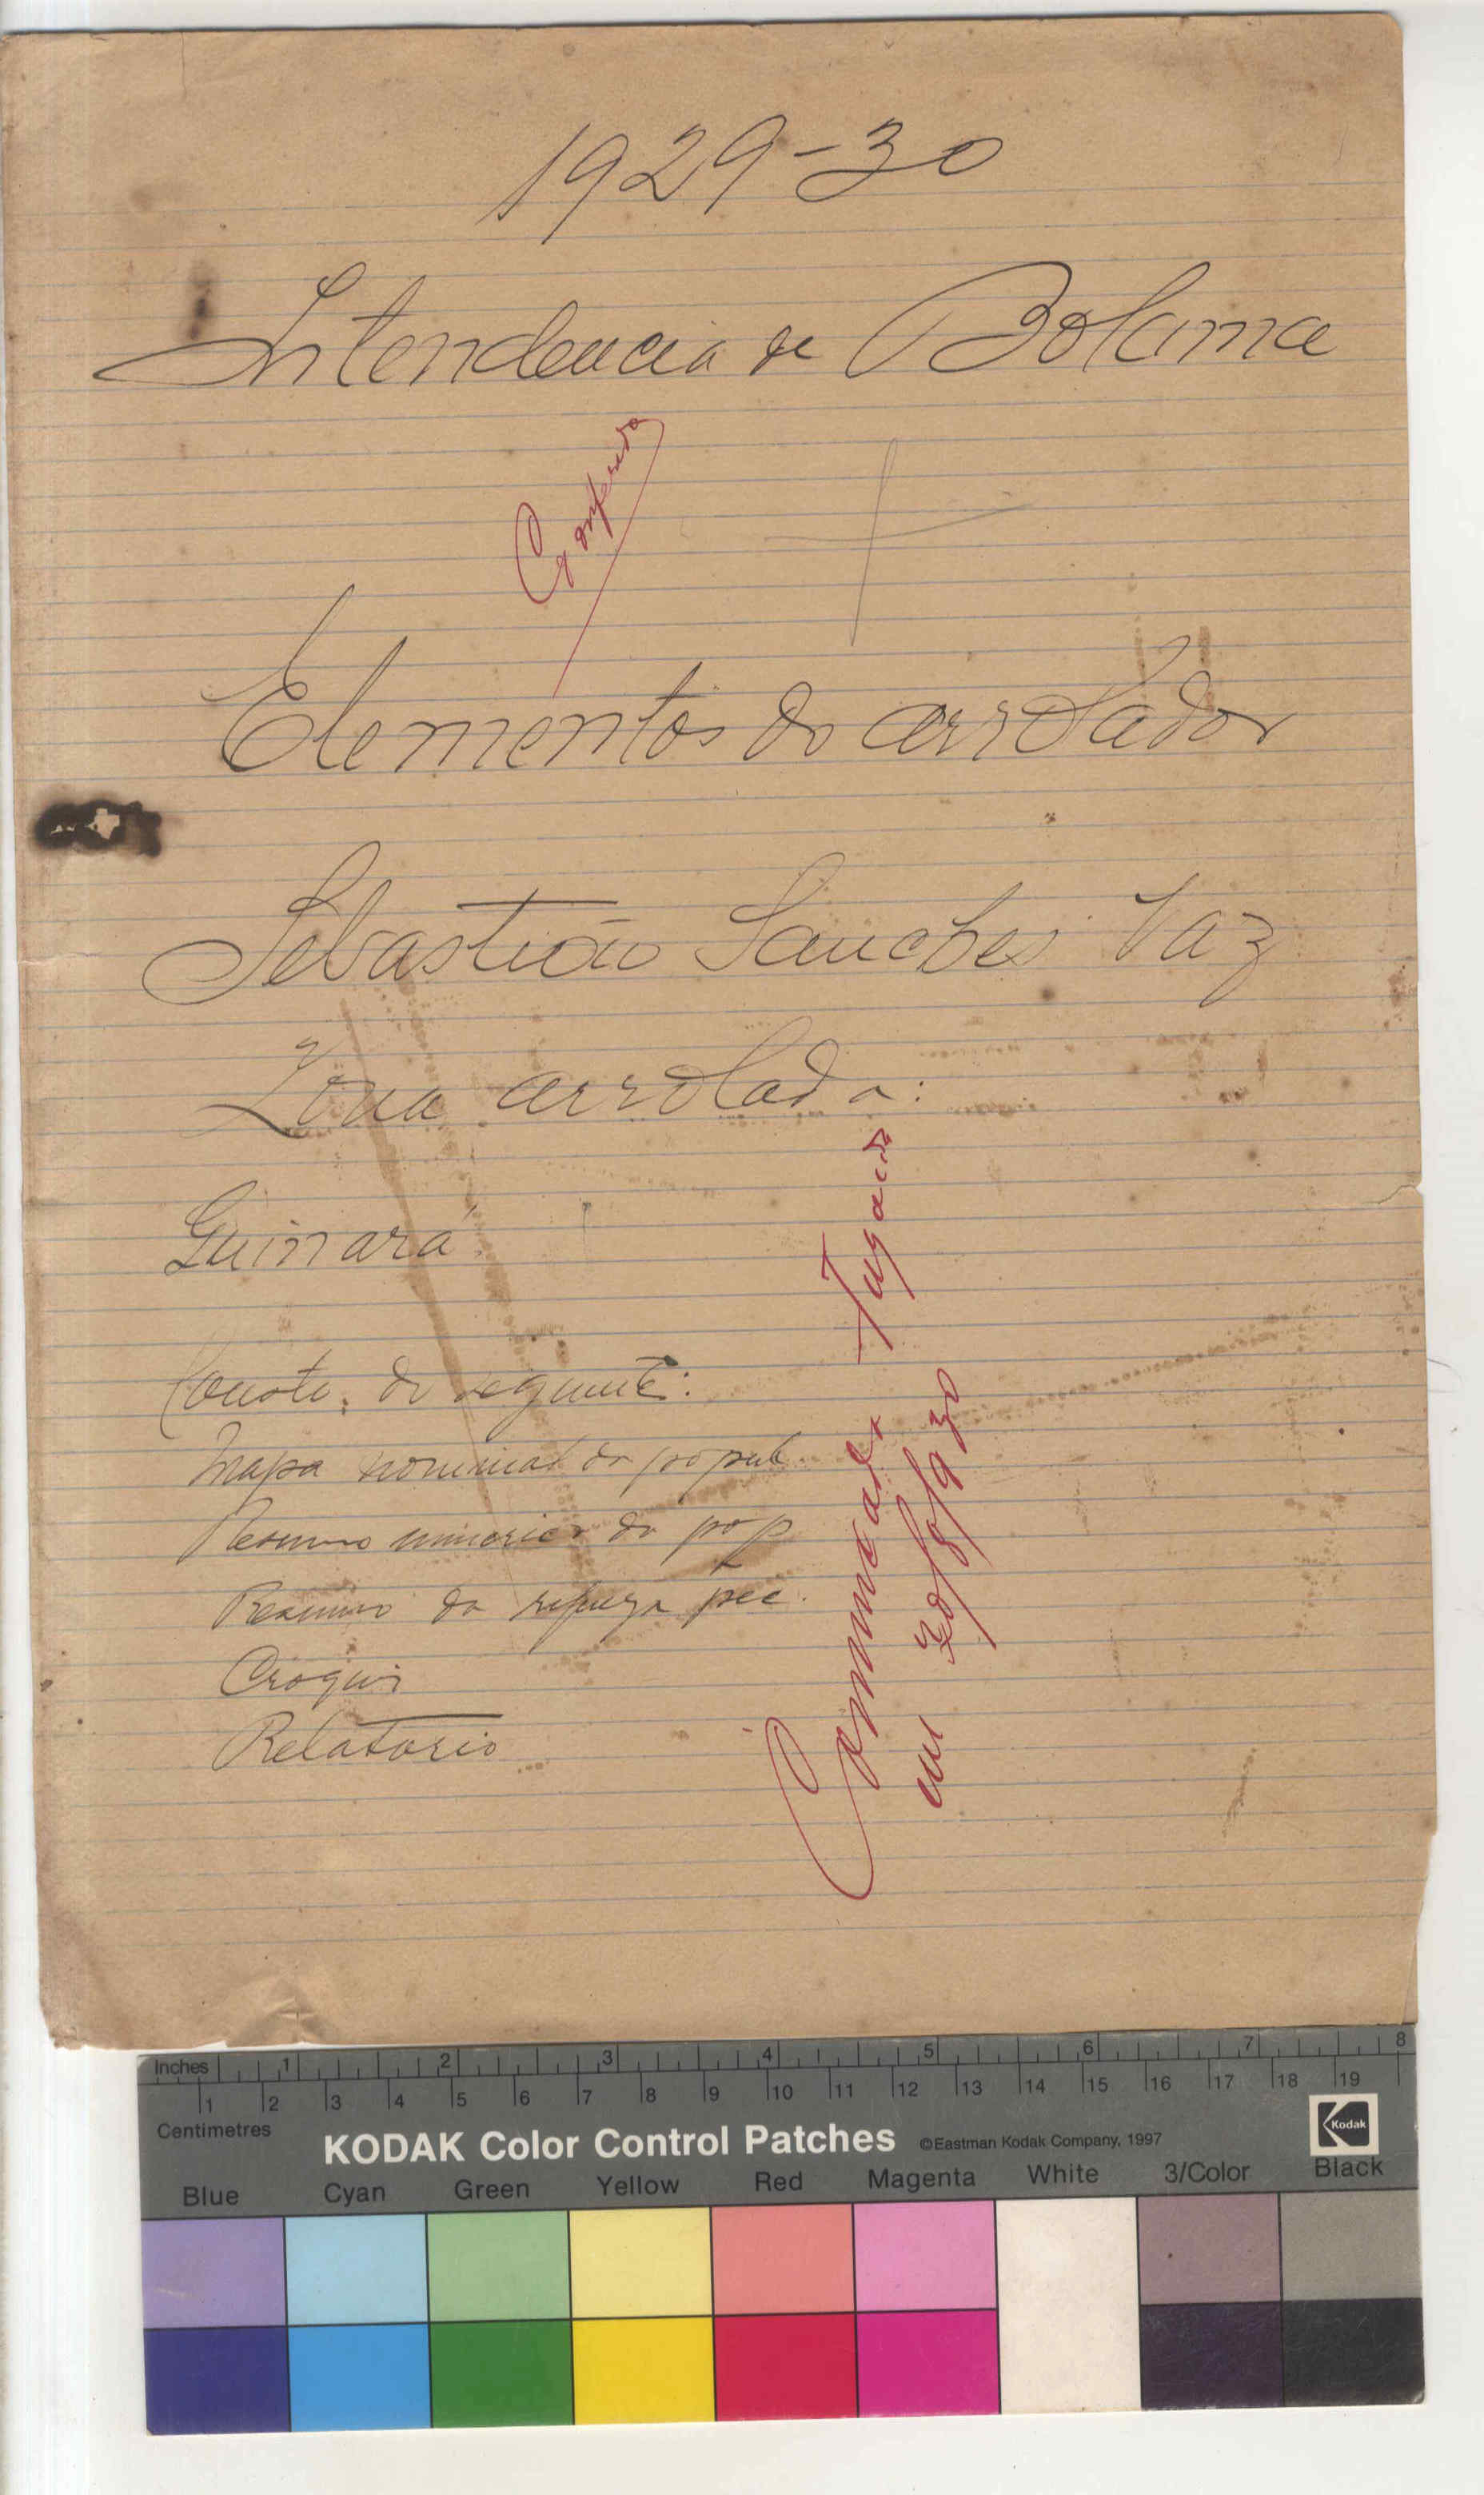 1929-30
Intendencia de Bolama
Conferido
Elementos do arrolador
Sebastião Sanches Vaz
Zona arrolada:
Guinará
Consta do seguinte:
Mapa nominal da popul.
Resumo numerico da pop
Resumo da riqueza pec.
Croqui
Relatorio
em 30/8/930
Inches 1 2 3 4 5 6 7 8
1 2 3 4 5 6 7 8 9 10 11 12 13 14 15 16 17 18 19
Centimetres
KODAK Color Control Patches ©Eastman Kodak Company, 1997 Kodak
Blue Cyan Green Yellow Red Magenta White 3/Color Black